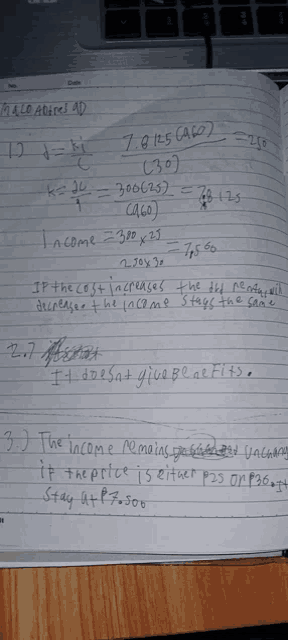 1.) d = ki/c 7.8125(960)/(30) = 250
k = dc/i = 300(25)/(960) = 7.8125
Income = 300 x 25
250 x 30 = 7,500
IF the cost increases the
decreases the income stays the same
2.)
It doesnt give BeneFits.
3.) The income remains unchang
if the price is either ₱25 or ₱30. It
stay at ₱7.500